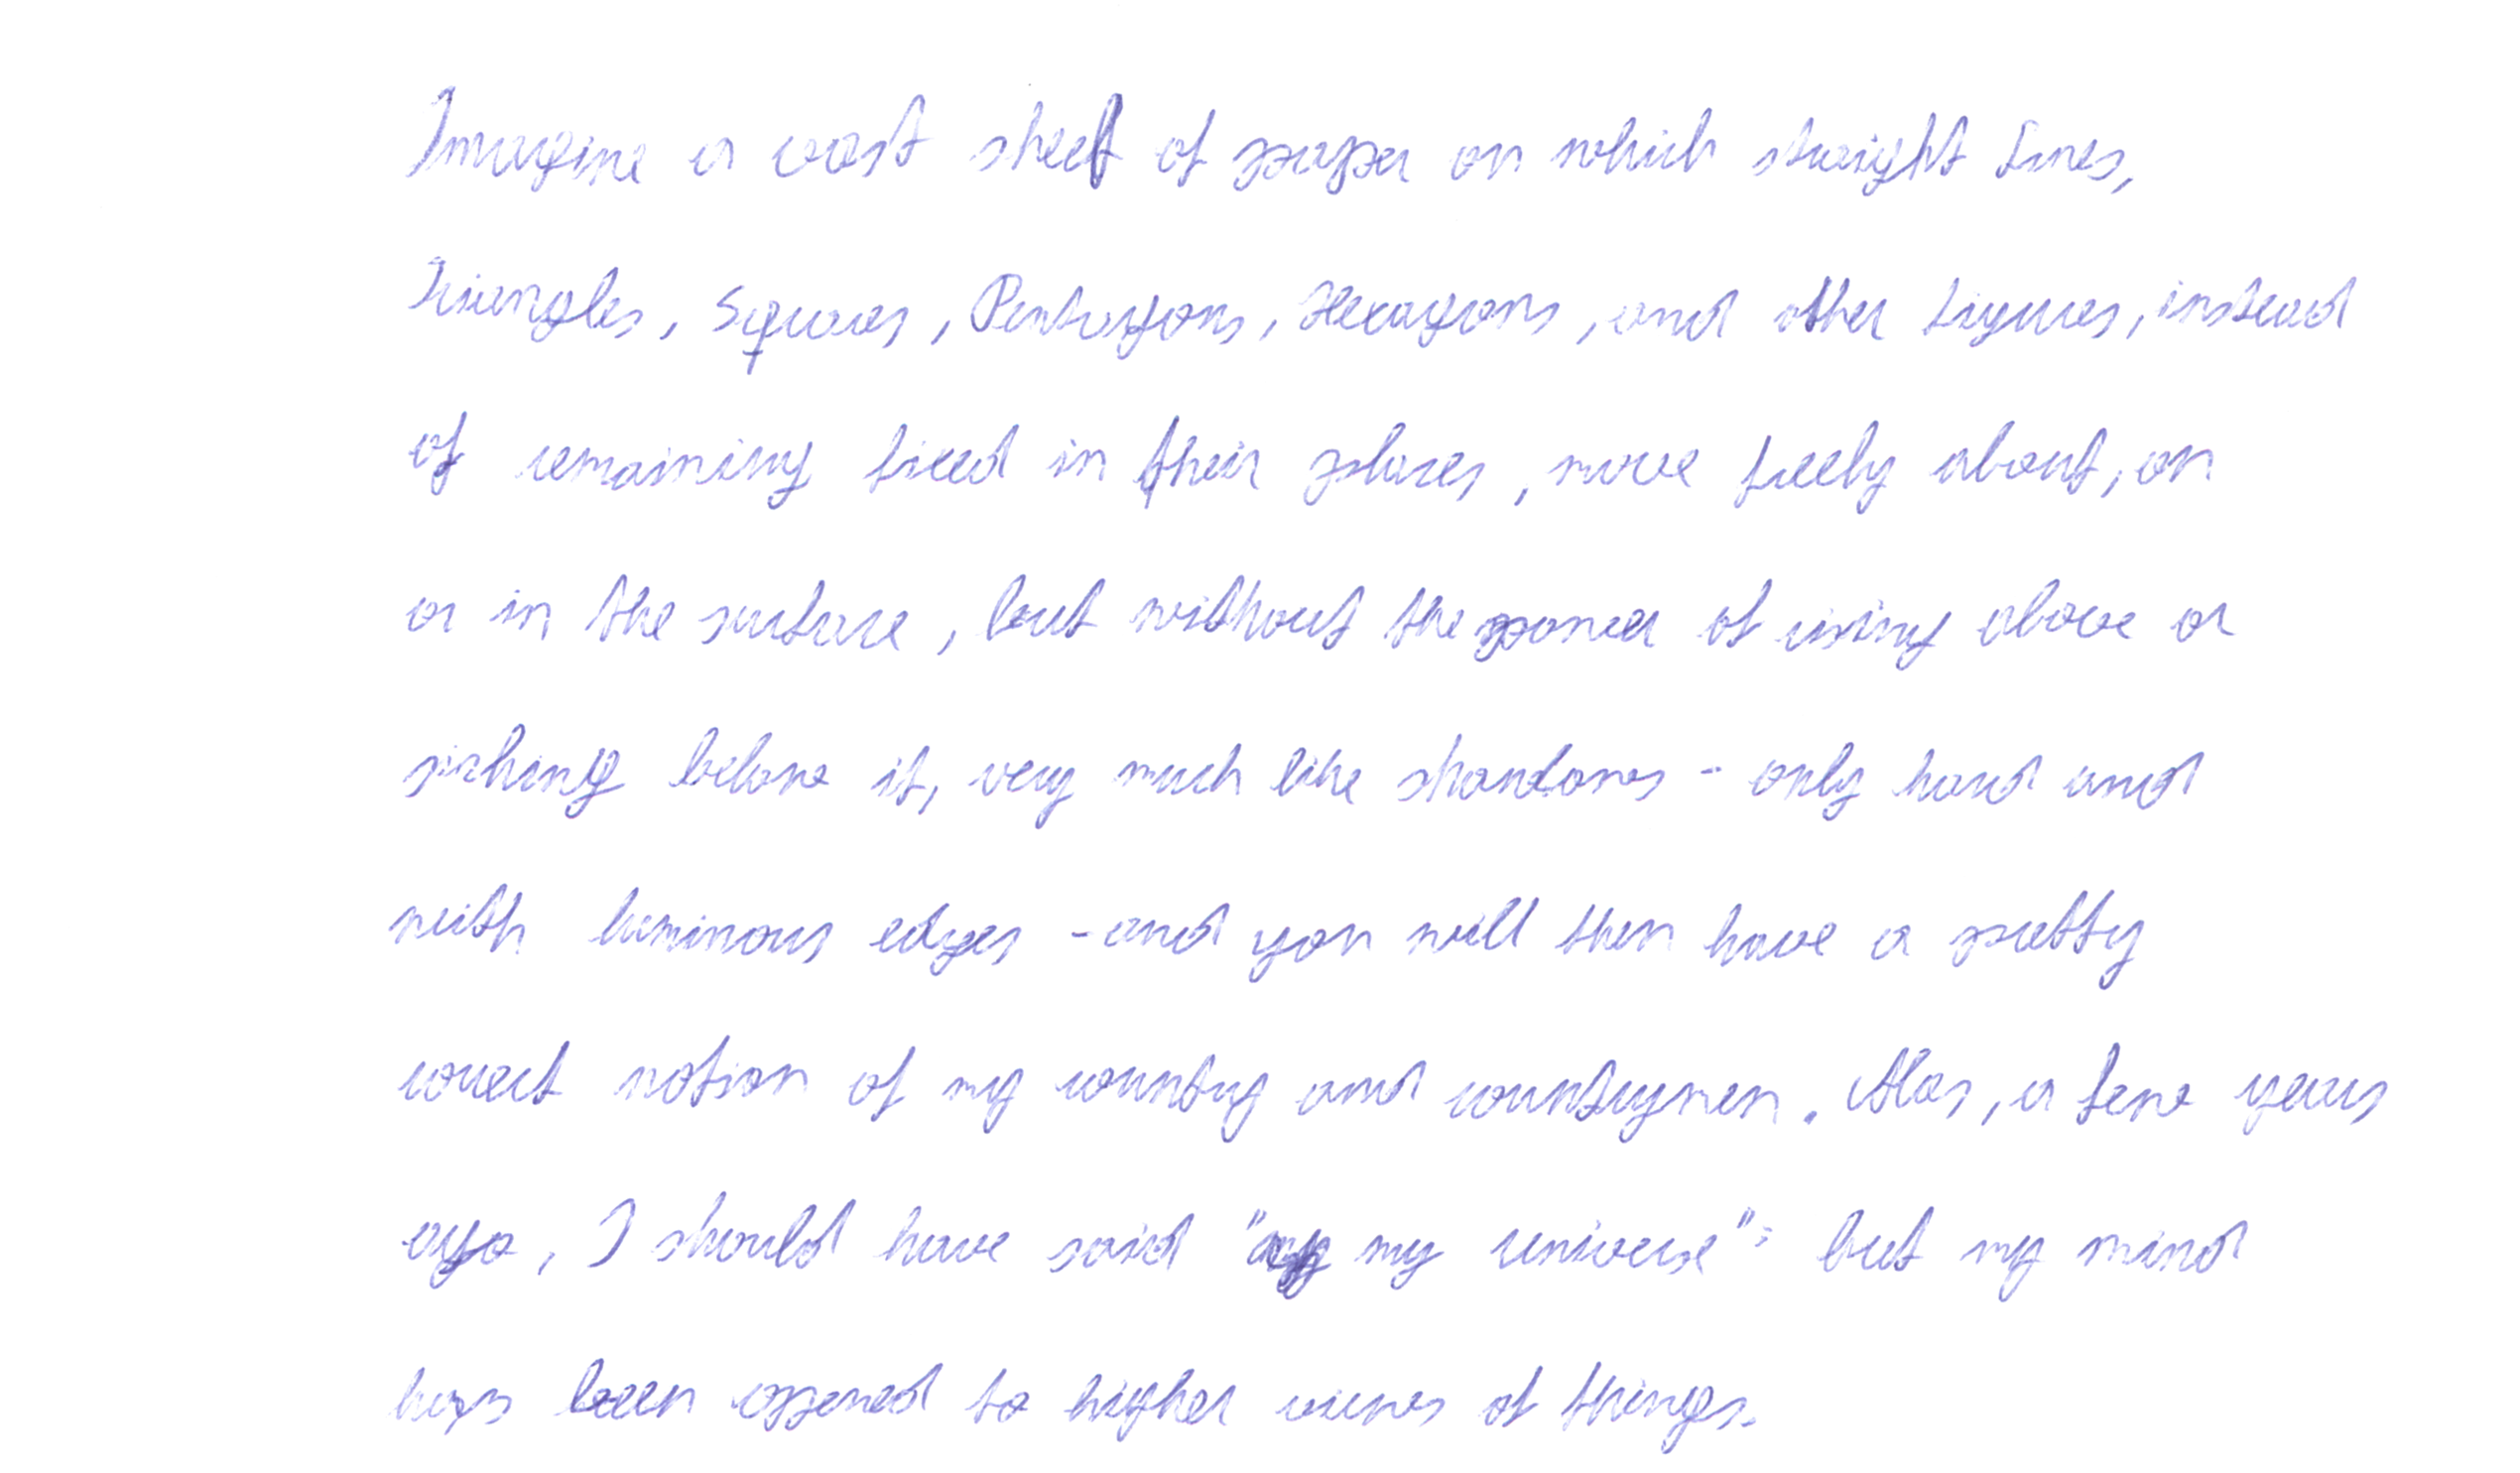 Imagine a vast sheet of paper on which straight Lines,
Triangles, Squares, Pentagons, Hexagons, and other Figures, instead
of remaining fixed in their places, move freely about, on
or in the surface, but without the power of rising above or
sinking below it, very much like shadows - only hard and
with luminous edges - and you will then have a pretty
correct notion of my country and countrymen. Alas, a few years
ago, I should have said " my universe": but my mind
has been opened to higher views of things.